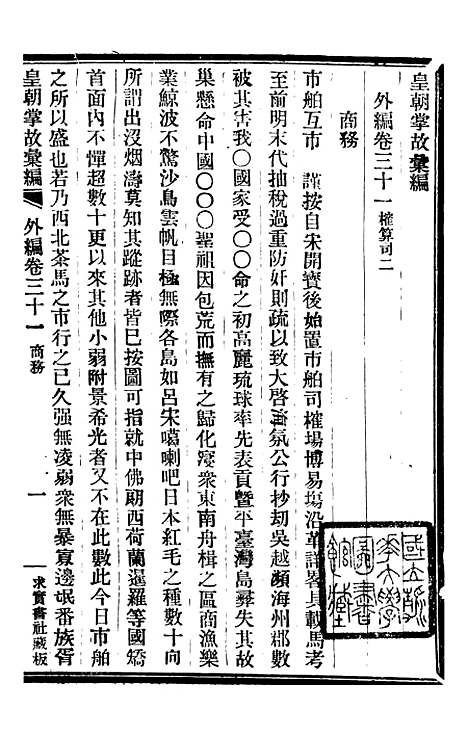 皇朝掌故彙編
外編卷三十一 榷算司二
商務
市舶互市 謹按自宋開寶後始置市舶司榷場博易場沿革詳畧具載馬考
至前明末代抽稅過重防奸則疏以致大啓海氛公行抄刼吳越瀕海州郡數
被其害我〇國家受〇〇命之初高麗琉球率先表貢暨平臺灣島彝失其故
巢懸命中國〇〇〇聖祖因包荒而撫有之歸化寖衆東南舟楫之區商漁樂
業鯨波不驚沙鳥雲帆目極無際各島如呂宋噶喇吧日本紅毛之種數十向
所謂出沒烟濤莫知其蹤跡者皆已按圖可指就中佛郎西荷蘭暹羅等國矯
首面內不憚超數十更以來其他小弱附景希光者又不在此數此今日市舶
之所以盛也若乃西北茶馬之市行之已久强無凌弱衆無暴寡邊氓番族胥
皇朝掌故彙編 外編卷三十一 商務 一 求實書社藏板
國立 大學圖書館藏